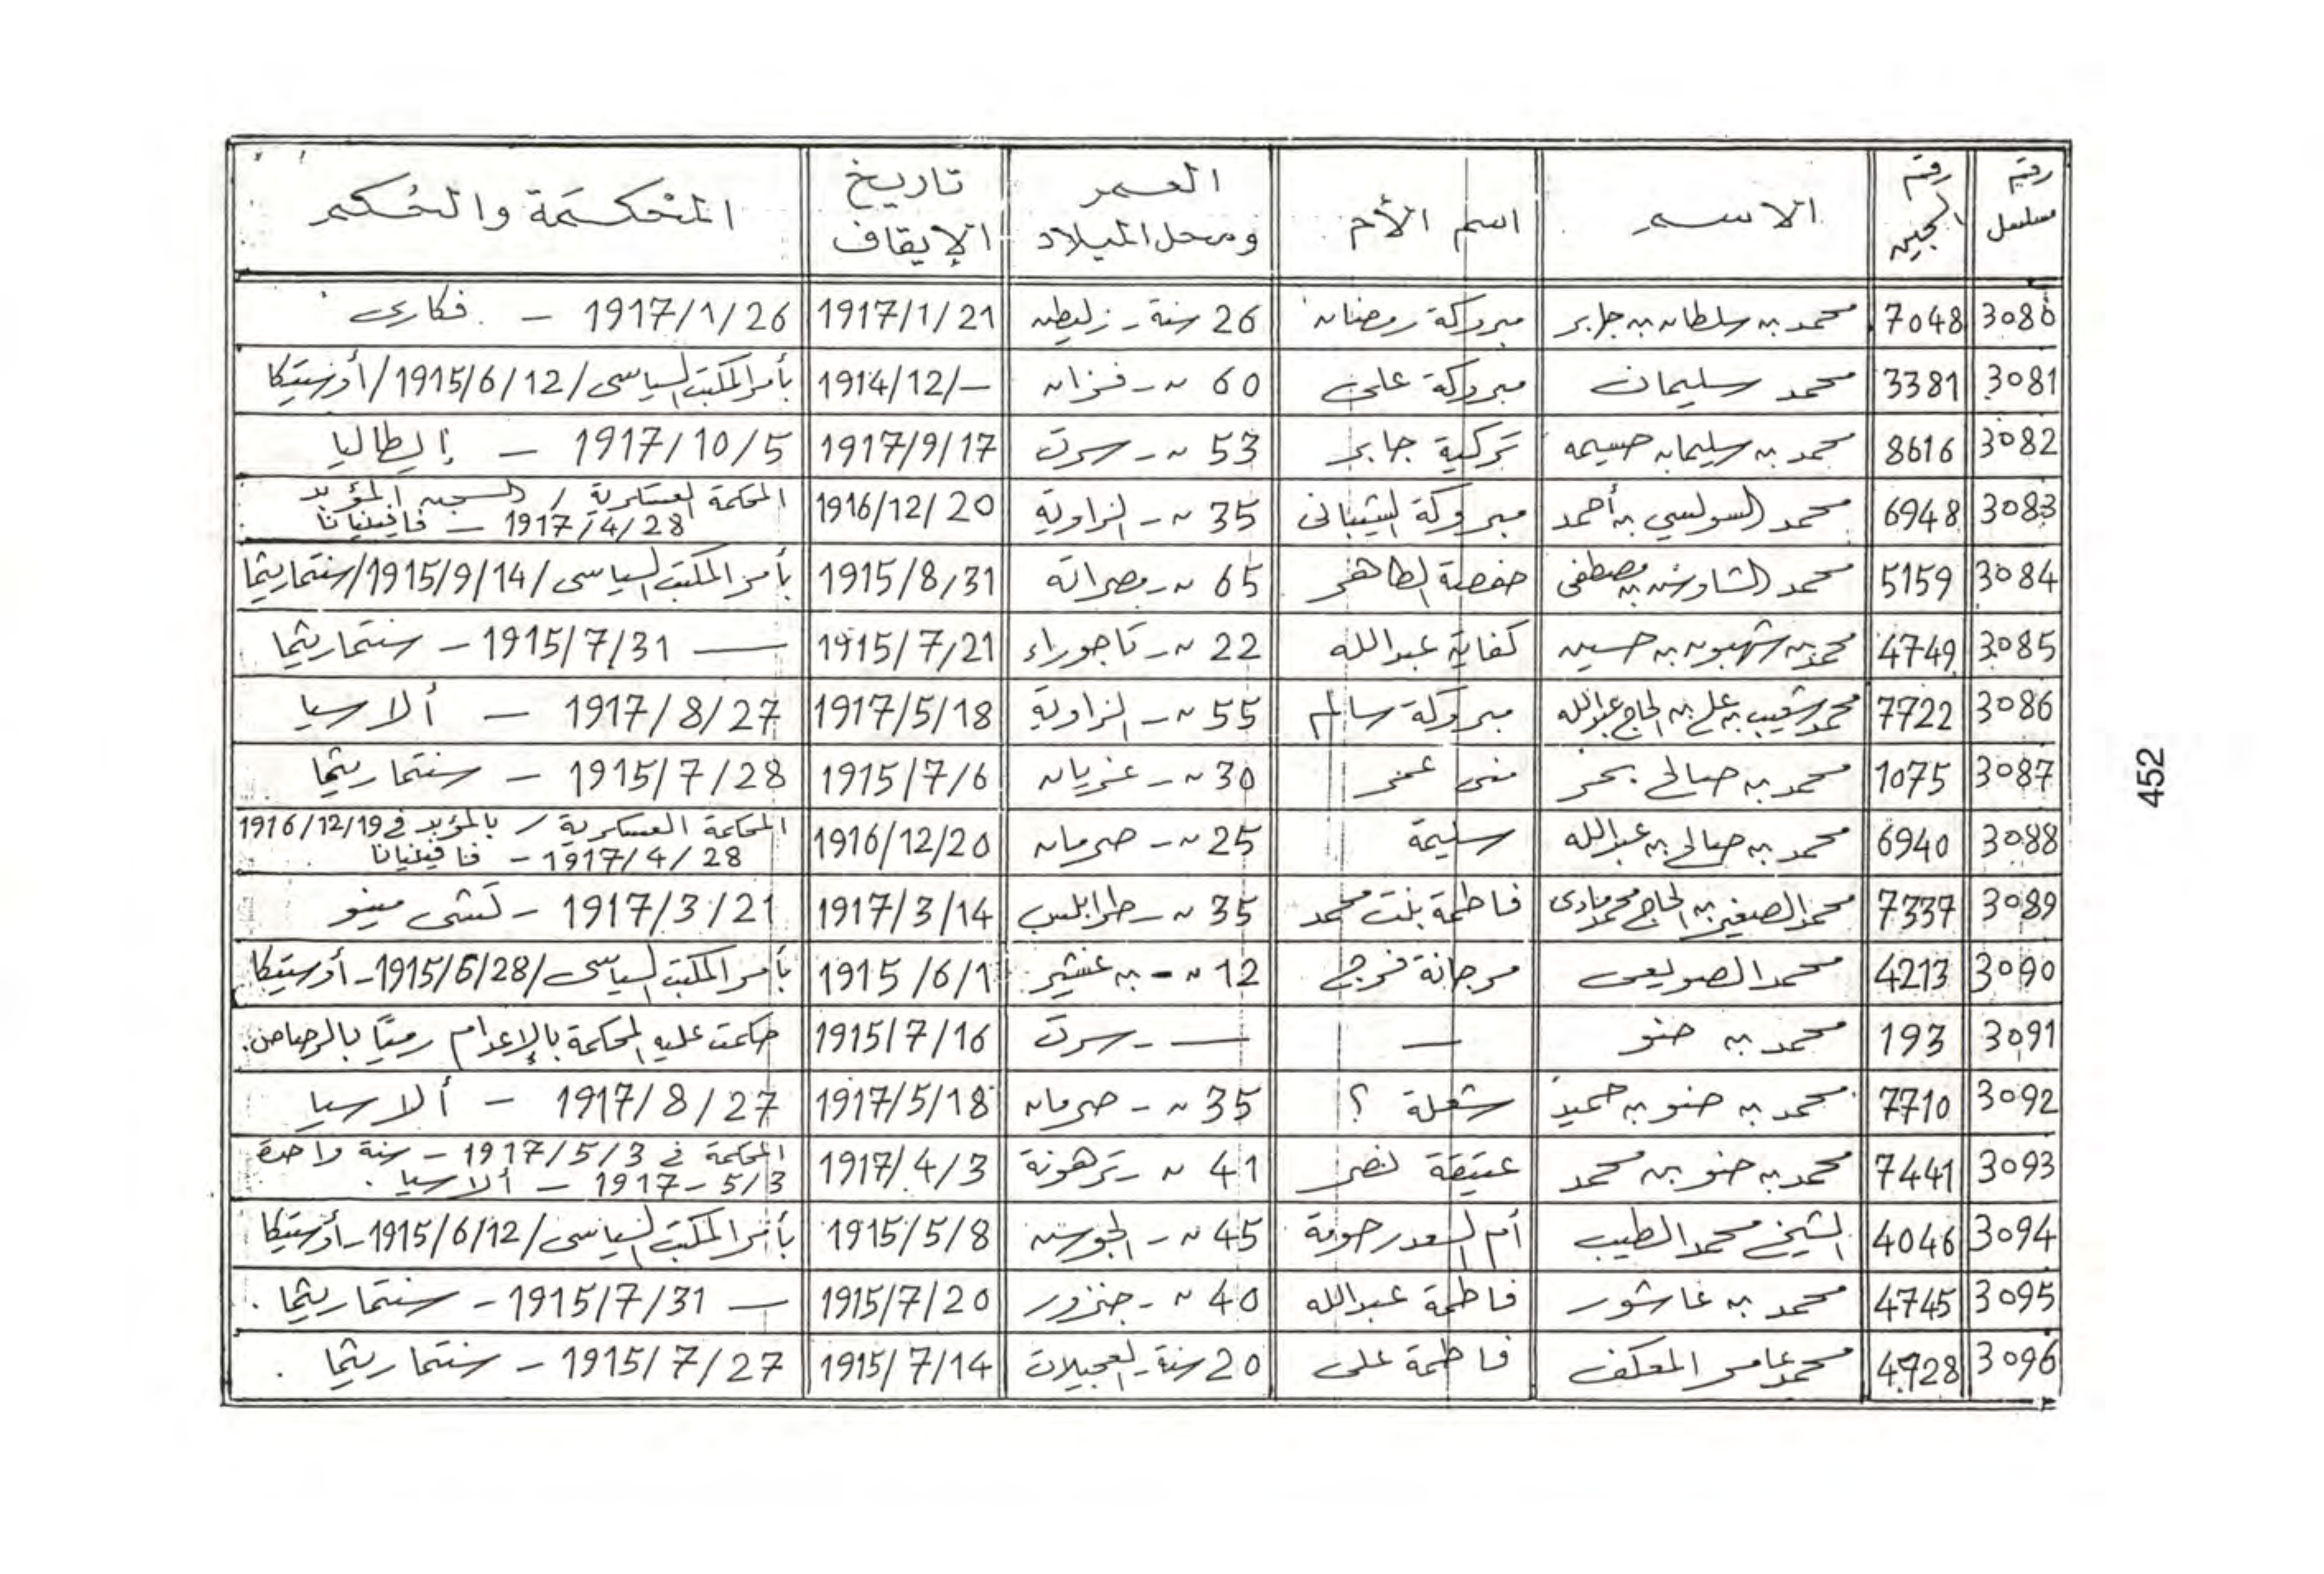 رقم مسلسل | رقم السجين | الاسم | اسم الأم | العمر ومحل الميلاد | تاريخ الإيقاف | المحكمة والحكم
3080 | 7048 | محمد بن سلطان بن جابر | مبروكة رمضان | 26 سنة - زليطن | 1917/1/21 | 1917/1/26 - فكارى
3081 | 3381 | محمد سليمان | مبروكة على | 60 〃 - فزان | 1914/12/- | بأمر المكتب السياسى / 1915/6/12 / أوستيكا
3082 | 8616 | محمد بن سليمان حسيمه | تركية جابر | 53 〃 - سرت | 1917/9/17 | 1917/10/5 - إيطاليا
3083 | 6948 | محمد السولسي بن أحمد | مبروكة الشيبانى | 35 〃 - الزاوية | 1916/12/20 | المحكمة العسكرية / السجن المؤبد
1917/4/28 - فافينيانا
3084 | 5159 | محمد الشاوش بن مصطفى | حفصة الطاهر | 65 〃 - مصراتة | 1915/8/31 | بأمر المكتب السياسى / 1915/9/14 / سنتماريثما
3085 | 4749 | محمد بن شهبون بن حسين | كفاية عبدالله | 22 〃 - تاجوراء | 1915/7/21 | — 1915/7/31 - سنتماريثما
3086 | 7722 | محمد شعيب بن على بن الحاج عبدالله | مبروكة سالم | 55 〃 - الزاوية | 1917/5/18 | 1917/8/27 - ألاسيا
3087 | 1075 | محمد بن صالح بحر | منى عمر | 30 〃 - غريان | 1915/7/6 | 1915/7/28 - سنتماريثما
3088 | 6940 | محمد بن صالح بن عبدالله | سليمة | 25 〃 - صرمان | 1916/12/20 | المحكمة العسكرية / بالمؤبد في 1916/12/19
1917/4/28 - فافينيانا
3089 | 7337 | محمد الصغير بن الحاج محمد | فاطمة بنت محمد | 35 〃 - طرابلس | 1917/3/14 | 1917/3/21 - كشى مينو
3090 | 4213 | محمد الصويعى | مرجانة فرج | 12 〃 - بن غشير | 1915/6/1 | بأمر المكتب السياسى / 1915/6/28 - أوستيكا
3091 | 193 | محمد بن ضو | — | — - سرت | 1915/7/16 | حكمت عليه المحكمة بالإعدام رميًا بالرصاص.
3092 | 7710 | محمد بن ضو بن حميد | شعلة ؟ | 35 〃 - صرمان | 1917/5/18 | 1917/8/27 - ألاسيا
3093 | 7441 | محمد بن ضو بن محمد | عتيقة نصر | 41 〃 - ترهونة | 1917/4/3 | المحكمة في 1917/5/3 - سنة واحدة
5/3 - 1917 - ألاسيا .
3094 | 4046 | الشيخ محمد الطيب | أم السعد رحومة | 45 〃 - الجوش | 1915/5/8 | بأمر المكتب السياسى / 1915/6/12 - أوستيكا
3095 | 4745 | محمد بن عاشور | فاطمة عبدالله | 40 〃 - جنزور | 1915/7/20 | — 1915/7/31 - سنتماريثما .
3096 | 4728 | محمد عامر المعكف | فاطمة على | 20 سنة - العجيلات | 1915/7/14 | 1915/7/27 - سنتماريثما .
452